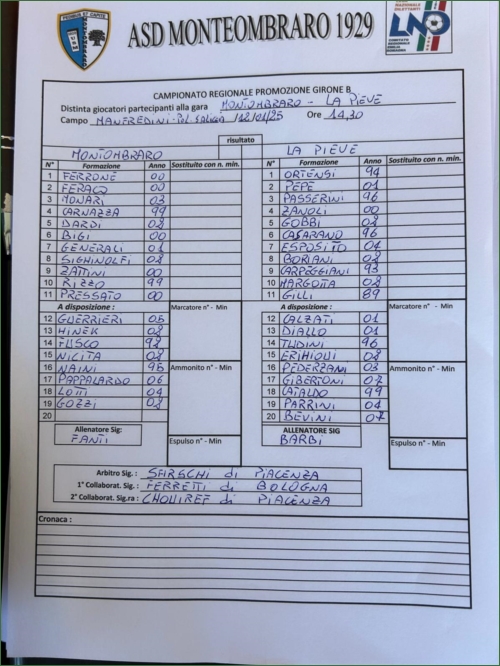 ASD MONTEOMBRARO 1929
CAMPIONATO REGIONALE PROMOZIONE GIRONE B
Distinta giocatori partecipanti alla gara MONTOMBRARO - LA PIEVE
Campo MANFREDINI - Pol. Saliceta 12/01/25 Ore 14,30
risultato
MONTOMBRARO LA PIEVE
N° Formazione Anno Sostituito con n. min. N° Formazione Anno Sostituito con n. min.
1 FERRONE 00 1 ORTENSI 94
2 FERACO 00 2 PEPE 01
3 MONARI 03 3 PASSERINI 96
4 CARNAZZA 99 4 ZANOLI 00
5 BARDI 08 5 GOBBI 08
6 BIGI 00 6 CASARANO 96
7 GENERALI 01 7 ESPOSITO 04
8 SIGHINOLFI 08 8 BORIANI 08
9 ZATTINI 00 9 CARPEGGIANI 93
10 RIZZO 99 10 MARGOTTA 08
11 PRESSATO 00 11 GILLI 89
A disposizione : Marcatore n° - Min A disposizione : Marcatore n° - Min
12 GUERRIERI 05 12 CALZATI 01
13 HINEK 08 13 DIALLO 01
14 FUSCO 98 14 TUDINI 96
15 NICITA 08 15 08
16 NAINI 98 Ammonito n° - Min 16 PEDERZANI 03 Ammonito n° - Min
17 PAPPALARDO 06 17 GIBERTONI 07
18 LOTTI 04 18 CATALDO 99
19 GOZZI 08 19 PARRINI 04
20 20 BEVINI 07
Allenatore Sig: ALLENATORE SIG
FANTI Espulso n° - Min BARBI Espulso n° - Min
Arbitro Sig. : di PIACENZA
1° Collaborat. Sig. : FERRETTI di BOLOGNA
2° Collaborat. Sig.ra : CHOUIREF di PIACENZA
Cronaca :